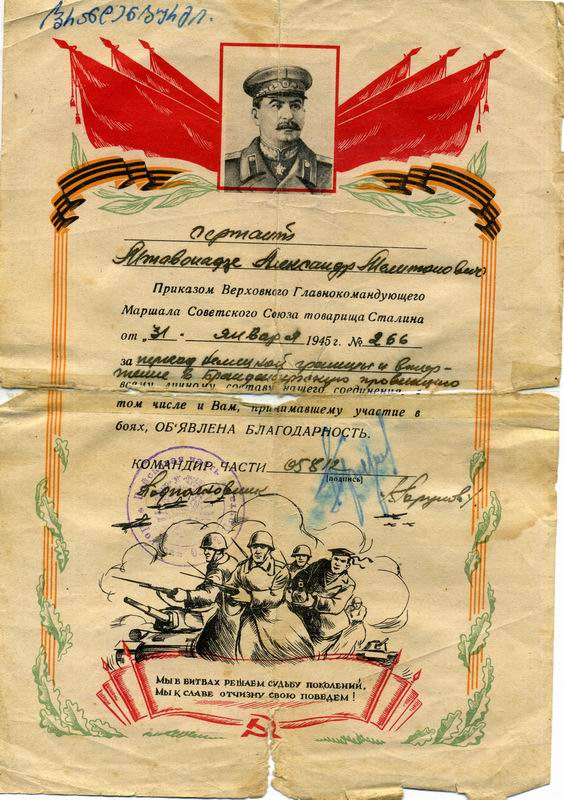 ბრანდენბურგ.
сержант
Александр Мелитонович
Приказом Верховного Главнокомандующего
Маршала Советского Союза товарища Сталина
от „31“ января 1945 г. № 266
за переход немецкой границы и втор-
жение в Бранденбургскую провинцию
всему личному составу нашего соединения, в
том числе и Вам, принимавшему участие в
боях, ОБ‘ЯВЛЕНА БЛАГОДАРНОСТЬ.
КОМАНДИР ЧАСТИ 05812
(подпись)
Подполковник
МЫ В БИТВАХ РЕШАЕМ СУДЬБУ ПОКОЛЕНИЙ,
МЫ К СЛАВЕ ОТЧИЗНУ СВОЮ ПОВЕДЕМ!